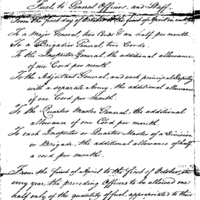 Fuel to General Officers, and Staff.
From the first day of October to the first of April in each year
To a Major General, two Cords & an half per month.
To a Brigadier General, two Cords.
To the Inspector General, the additional allowance
of one Cord per month.
To the Adjutant General, and each principal deputy
with a separate Army, the additional allowance
of one Cord per Month.
To the Quarter Master General, the additional
allowance of one Cord per month.
To each Inspector or Quarter Master of a Division
or Brigade, the additional allowance of half
a cord per month.
From the first of April to the first of October, in
every year, the preceding Officers to be allowed one
half only of the quantity of fuel appropriated to their